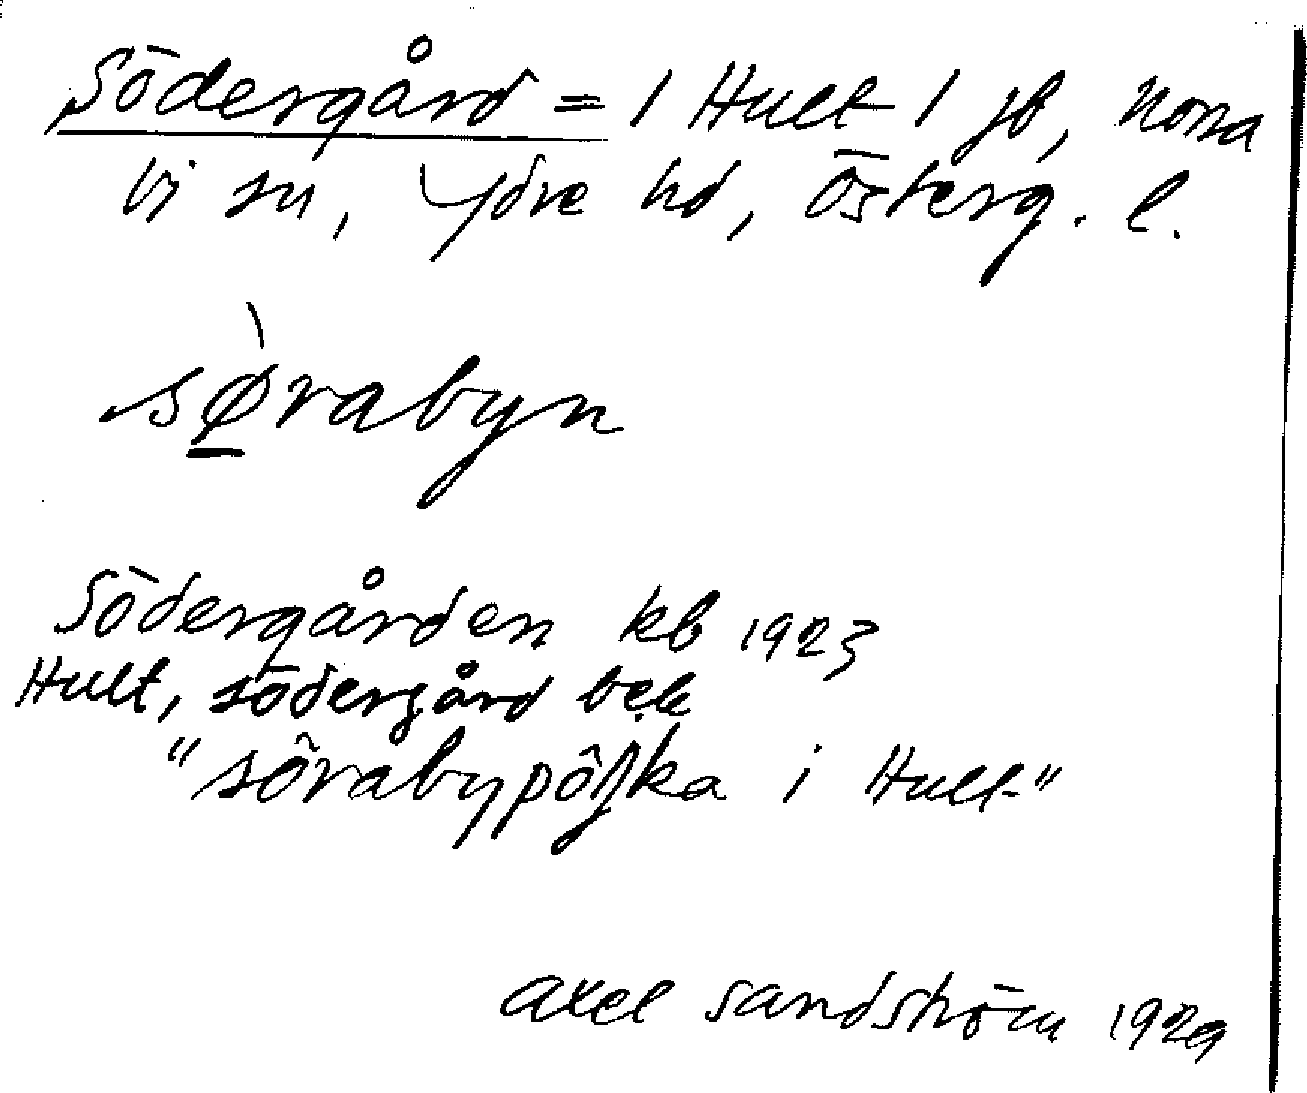 Södergård = 1 Hult 1 jb, Norra
Vi sn, Ydre hd, Österg. l.
sø̱̀rabyn
Södergården kb 1923
Hult, södergård bek
"sörabypôjka i Hult"
Axel Sandström 1929